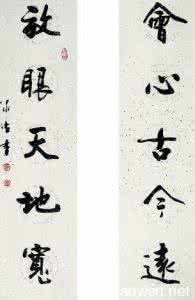 會心古今遠
放眼天地寬